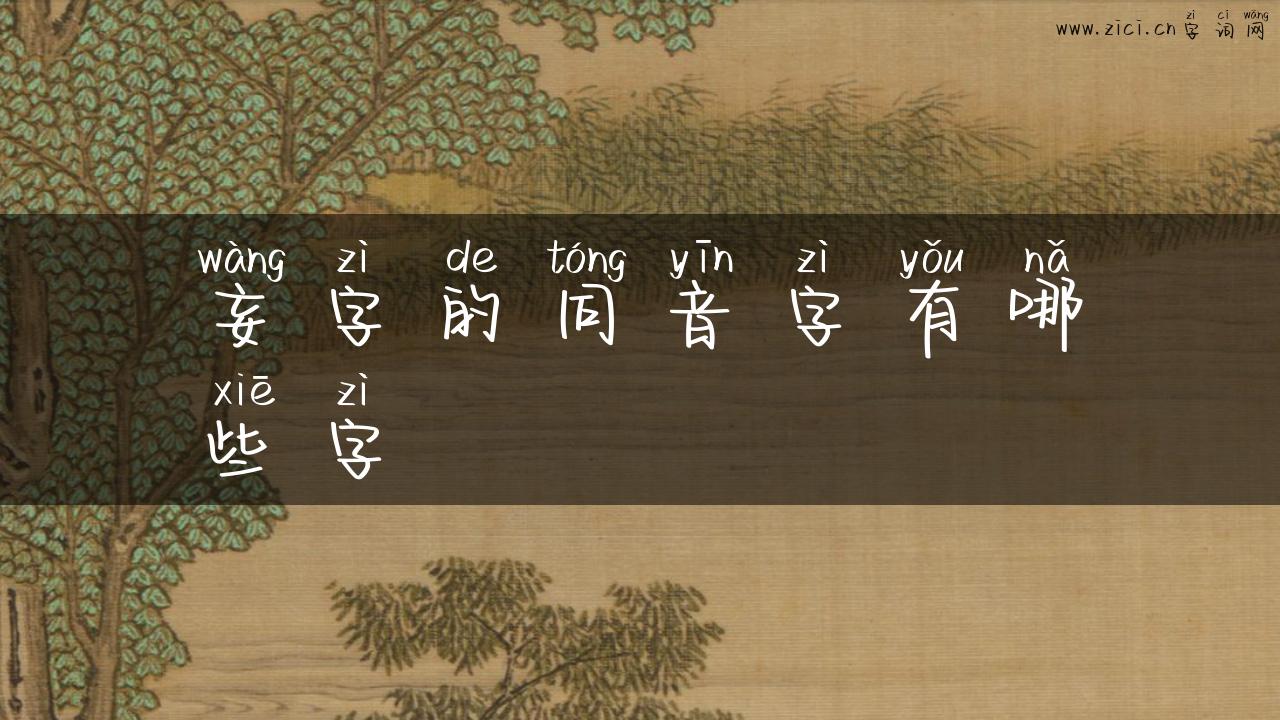 zì cí wǎng
www.zici.cn字词网
wàng zì de tóng yīn zì yǒu nǎ
妄字的同音字有哪
xiē zì
些字